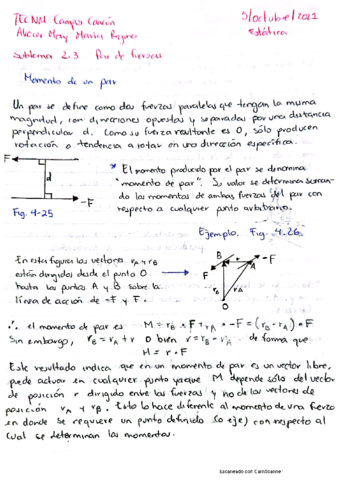 TECNM Campus Cancún
5/octubre/2021
Estática
Subtema 2.3 Par de fuerzas
Momento de un par
Un par se define como dos fuerzas paralelas que tengan la misma
magnitud, con direcciones opuestas y separadas por una distancia
perpendicular d. Como su fuerza resultante es 0, sólo producen
rotación o tendencia a rotar en una dirección específica.
F
d
-F
Fig. 4-25
* El momento producido por el par se denomina
"momento de par". Su valor se determina suman-
do los momentos de ambas fuerzas del par con
respecto a cualquier punto arbitrario.
Ejemplo. Fig. 4.26.
En esta figura los vectores rA y rB
están dirigidos desde el punto O
hasta los puntos A y B sobre la
línea de acción de -F y F.
B
r
-F
F
A
rB
rA
O
∴ el momento de par es M = rB × F + rA × -F = (rB - rA) × F
Sin embargo, rB = rA + r O bien r = rB - rA de forma que
M = r × F
Este resultado indica que en un momento de par es un vector libre,
puede activar en cualquier punto ya que M depende sólo del vector
de posición r dirigido entre las fuerzas y no de los vectores de
posición rA y rB. Esto lo hace diferente al momento de una fuerza
en donde se requiere un punto definido (o eje) con respecto al
cual se determinan los momentos.
Escaneado con CamScanner